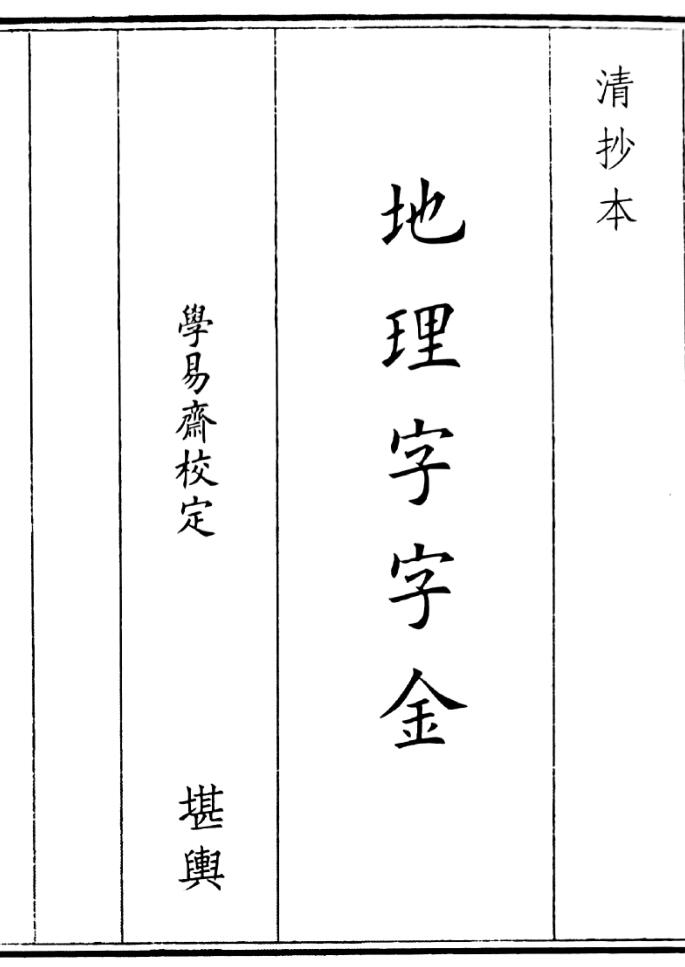 清抄本
地理字字金
學易齋校定
堪輿